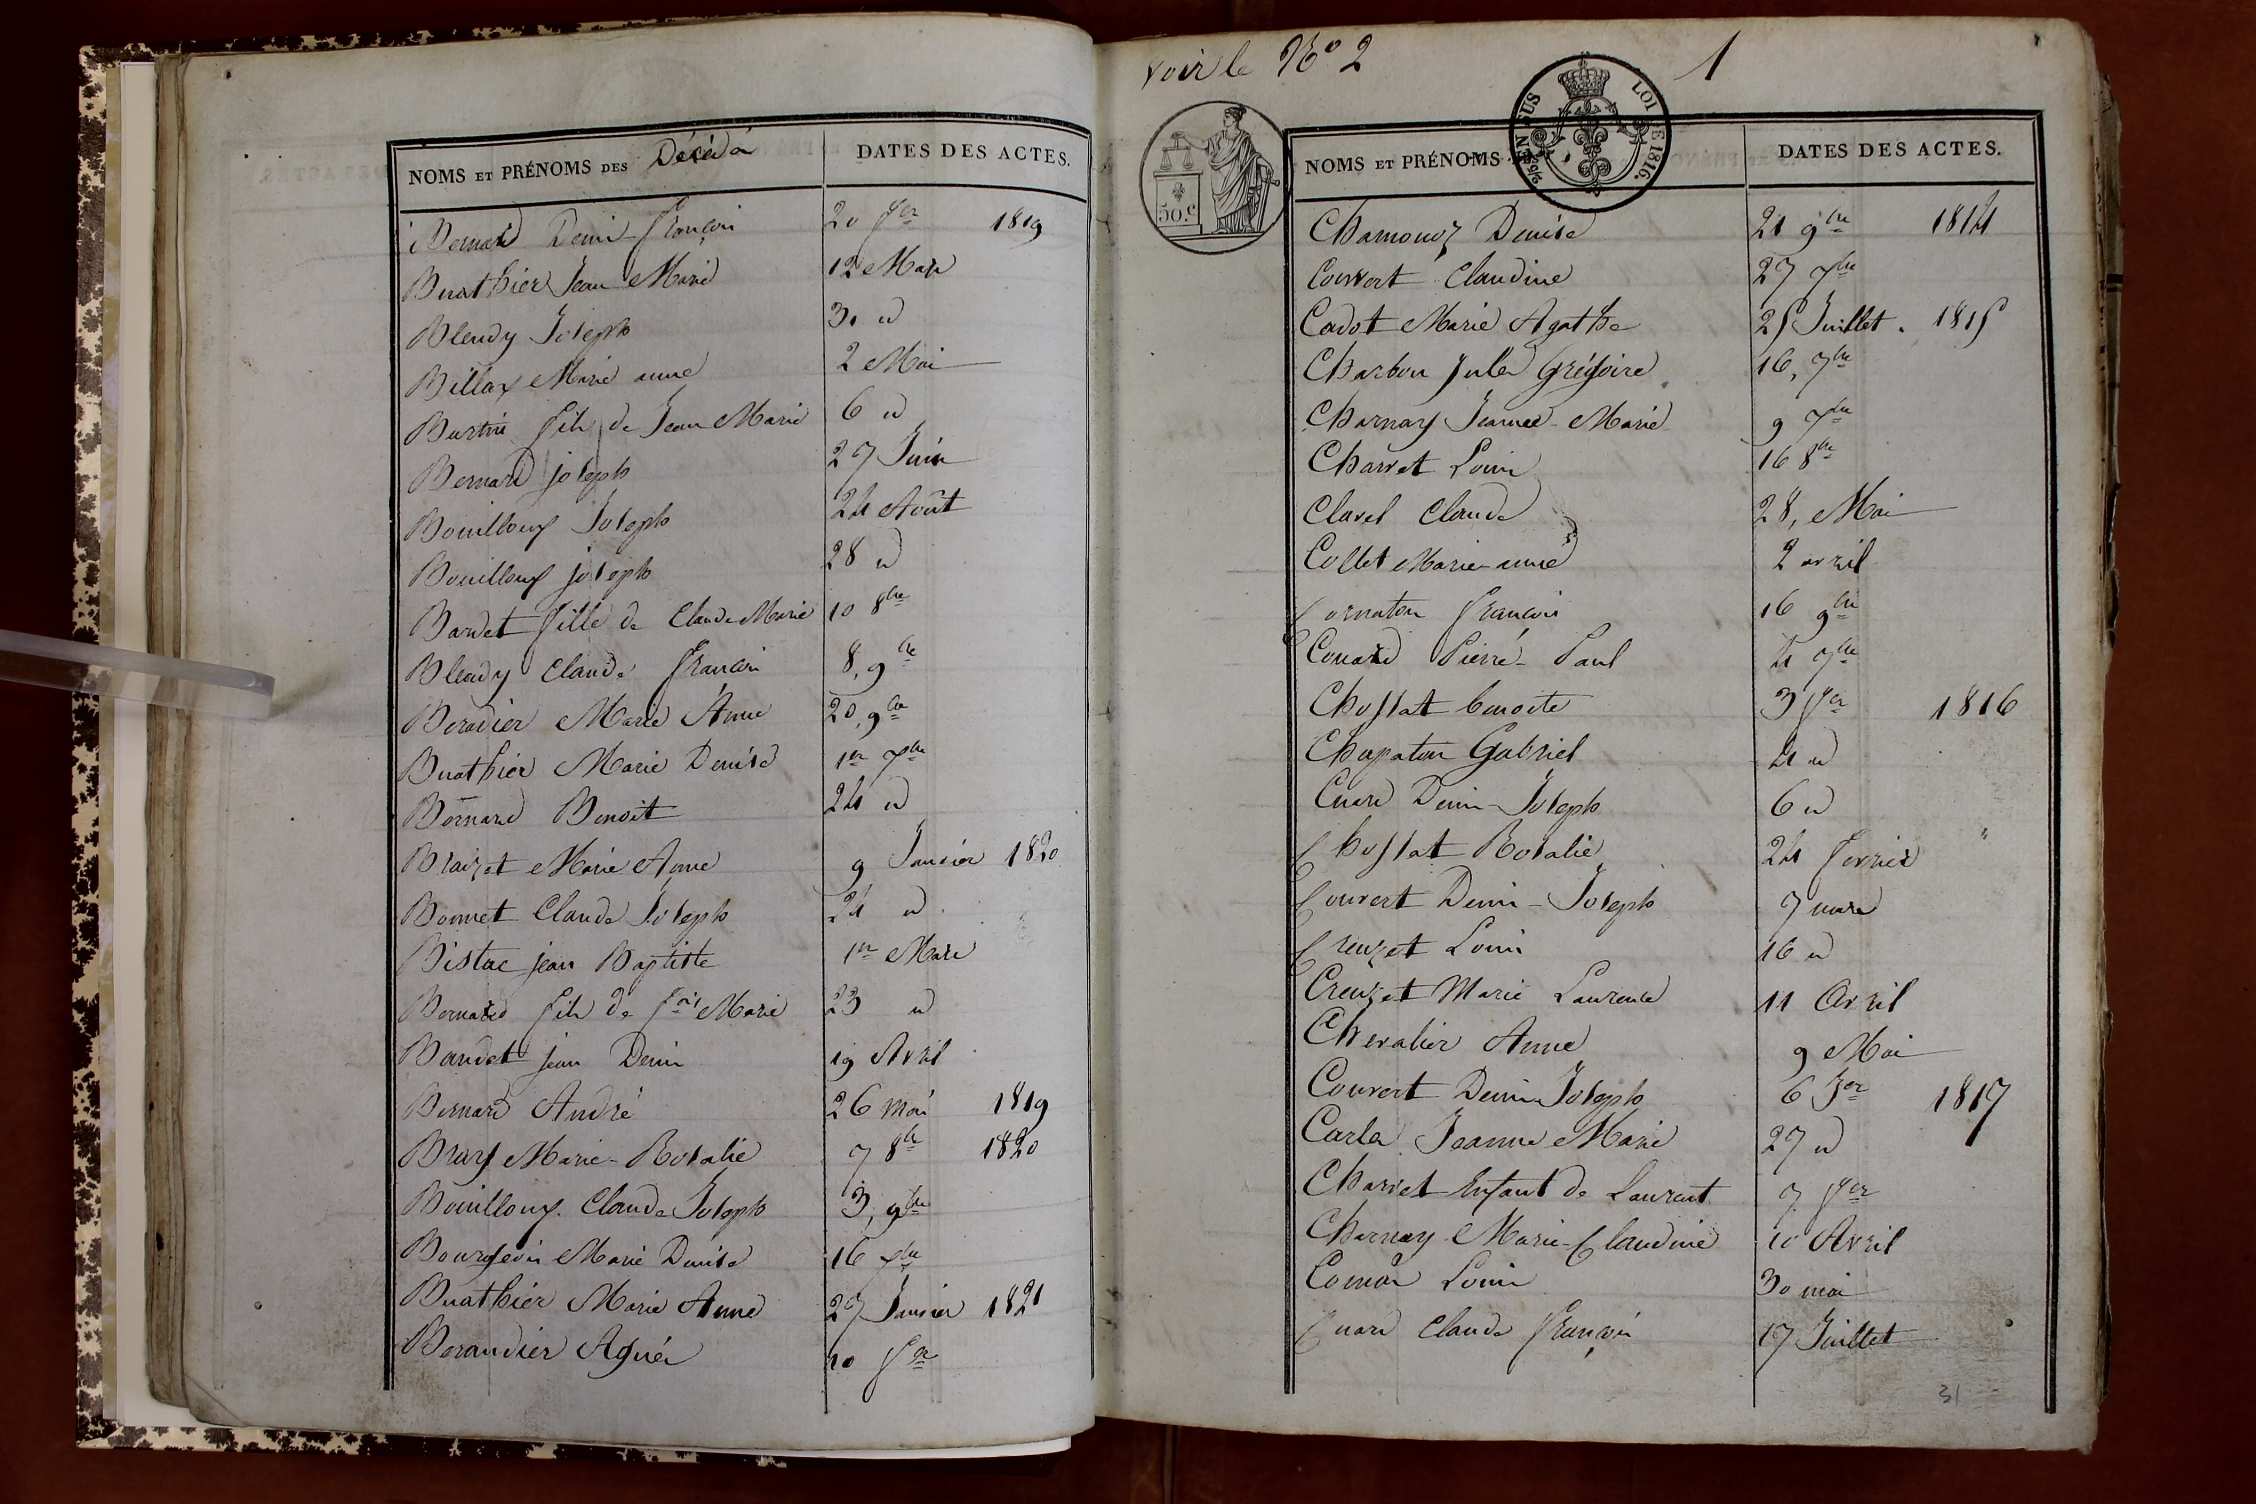 NOMS ET PRÉNOMS DES Décédés DATES DES ACTES.
Bernard Denis François 20 fer 1819
Buathier Jean Marie 12 Mars
Blendy Joseph 30 id
Billax Marie anne 2 Mai
Burtin fils de Jean Marie 6 id
Bernard joseph 27 Juin
Bouilloux Joseph 24 Août
Bouilloux joseph 28 id
Bardet fille de Claude Marie 10 8bre
Blendy Claude François 8, 9bre
Beradier Marie Anne 20, 9bre
Buathier Marie Denise 1er xbre
Bernard Benoit 24 id
Braizet Marie Anne 9 Janvier 1820
Bonnet Claude Joseph 24 id
Bistac jean Baptiste 1er Mars
Bernard fils de fois Marie 23 id
Baudet jean Denis 19 Avril
Bernard André 26 mai 1819
Bray Marie-Rosalie 7 8bre 1820
Bouilloux Claude Joseph 3, 9bre
Bourgeois Marie Denise 16 xbre
Buathier Marie Anne 27 Janvier 1821
Berandier Agnès 10 fer
voir le No 2 1
50 c.
EN SUS
LOI DE 1816.
NOMS ET PRÉNOMS DES DATES DES ACTES.
Chamouoz Denise 21 9bre 1814
Couvert Claudine 27 xbre
Cadot Marie Agathe 25 Juillet. 1815
Charbon Jules Grégoire 16, 7bre
Charnay Jeanne-Marie 9 xbre
Charvet Louis 16 8bre
Clavel Claude 28, Mai
Collet Marie-anne 2 avril
Cornaton François 16 9bre
Couard Pierre-Paul 4 7bre
Chossat benoite 3 fer 1816
Chapaton Gabriel 4 id
Cuard Denis-Joseph 6 id
Chossat Rosalie 24 fevrier "
Couvert Denis-Joseph 7 mars
Creuzet Louis 16 id
Creuzet Marie Laurence 11 Avril
Chevalier Anne 9 Mai
Couvert Denis Joseph 6 Jer 1817
Carle Jeanne Marie 27 id
Charvet Enfant de Laurent 7 fer
Charnay Marie-Claudine 10 Avril
Comon Louis 30 mai
Cuard Claude François 17 Juillet
31